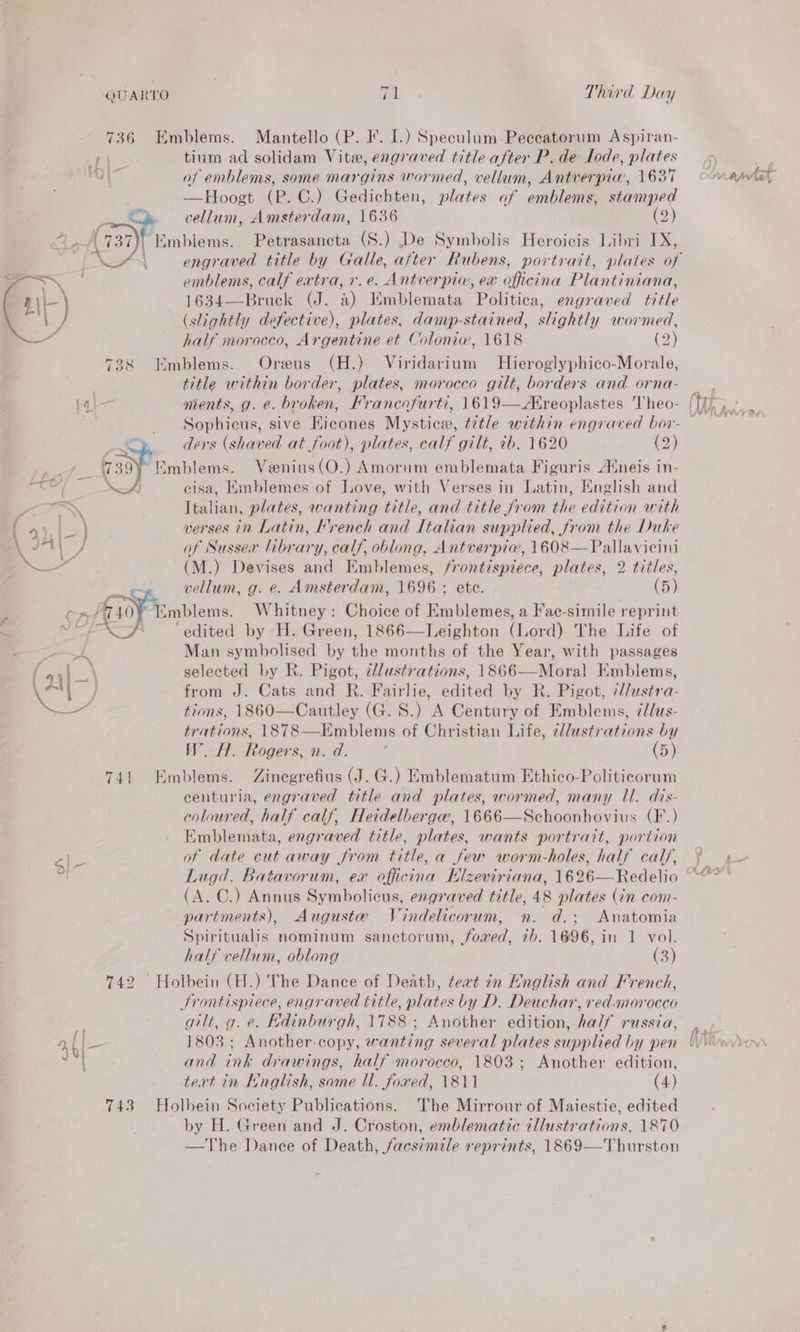 QUARTO 71 Third Day
736 Emblems. Mantello (P. F. I.) Speculum Peccatorum Aspiran-
tium ad solidam Vitæ, engraved title after P. de Iode, plates
of emblems, some margins wormed, vellum, Antverpiæ, 1637
—Hoogt (P. C.) Gedichten, plates of emblems, stamped
vellum, Amsterdam, 1636 (2)
737 Emblems. Petrasancta (S.) De Symbolis Heroicis Libri IX,
engraved title by Galle, after Rubens, portrait, plates of
emblems, calf extra, r. e. Antverpiæ, ex officina Plantiniana,
1634—Bruck (J. à) Emblemata Politica, engraved title
(slightly defective), plates, damp-stained, slightly wormed,
half morocco, Argentinæ et Coloniæ, 1618 (2)
738 Emblems. Oræus (H.) Viridarium Hieroglyphico-Morale,
title within border, plates, morocco gilt, borders and orna-
ments, g. e. broken, Francofurti, 1619—Æreoplastes Theo-
Sophicus, sive Eicones Mysticæ, title within engraved bor-
ders (shaved at foot), plates, calf gilt, ib. 1620 (2)
739 Emblems. Vænius (O.) Amorum emblemata Figuris Æneis in-
cisa, Emblemes of Love, with Verses in Latin, English and
Italian, plates, wanting title, and title from the edition with
verses in Latin, French and Italian supplied, from the Duke
of Sussex library, calf, oblong, Antverpiæ, 1608—Pallavicini
(M.) Devises and Emblemes, frontispiece, plates, 2 titles,
vellum, g. e. Amsterdam, 1696; etc. (5)
740 Emblems. Whitney: Choice of Emblemes, a Fac-simile reprint
edited by H. Green, 1866—Leighton (Lord) The Life of
Man symbolised by the months of the Year, with passages
selected by R. Pigot, illustrations, 1866—Moral Emblems,
from J. Cats and R. Fairlie, edited by R. Pigot, illustra-
tions, 1860—Cautley (G. S.) A Century of Emblems, illus-
trations, 1878—Emblems of Christian Life, illustrations by
W. H. Rogers, n. d. (5)
741 Emblems. Zincgrefius (J. G.) Emblematum Ethico-Politicorum
centuria, engraved title and plates, wormed, many ll. dis-
coloured, half calf, Heidelbergæ, 1666—Schoonhovius (F.)
Emblemata, engraved title, plates, wants portrait, portion
of date cut away from title, a few worm-holes, half calf,
Lugd. Batavorum, ex officina Elzeviriana, 1626—Redelio
(A. C.) Annus Symbolicus, engraved title, 48 plates (in com-
partments), Augustæ Vindelicorum, n. d.; Anatomia
Spiritualis nominum sanctorum, foxed, ib. 1696, in 1 vol.
half vellum, oblong (3)
742 Holbein (H.) The Dance of Death, text in English and French,
frontispiece, engraved title, plates by D. Deuchar, red morocco
gilt, g. e. Edinburgh, 1788; Another edition, half russia,
1803; Another copy, wanting several plates supplied by pen
and ink drawings, half morocco, 1803; Another edition,
text in English, some ll. foxed, 1811 (4)
743 Holbein Society Publications. The Mirrour of Maiestie, edited
by H. Green and J. Croston, emblematic illustrations, 1870
—The Dance of Death, facsimile reprints, 1869—Thurston